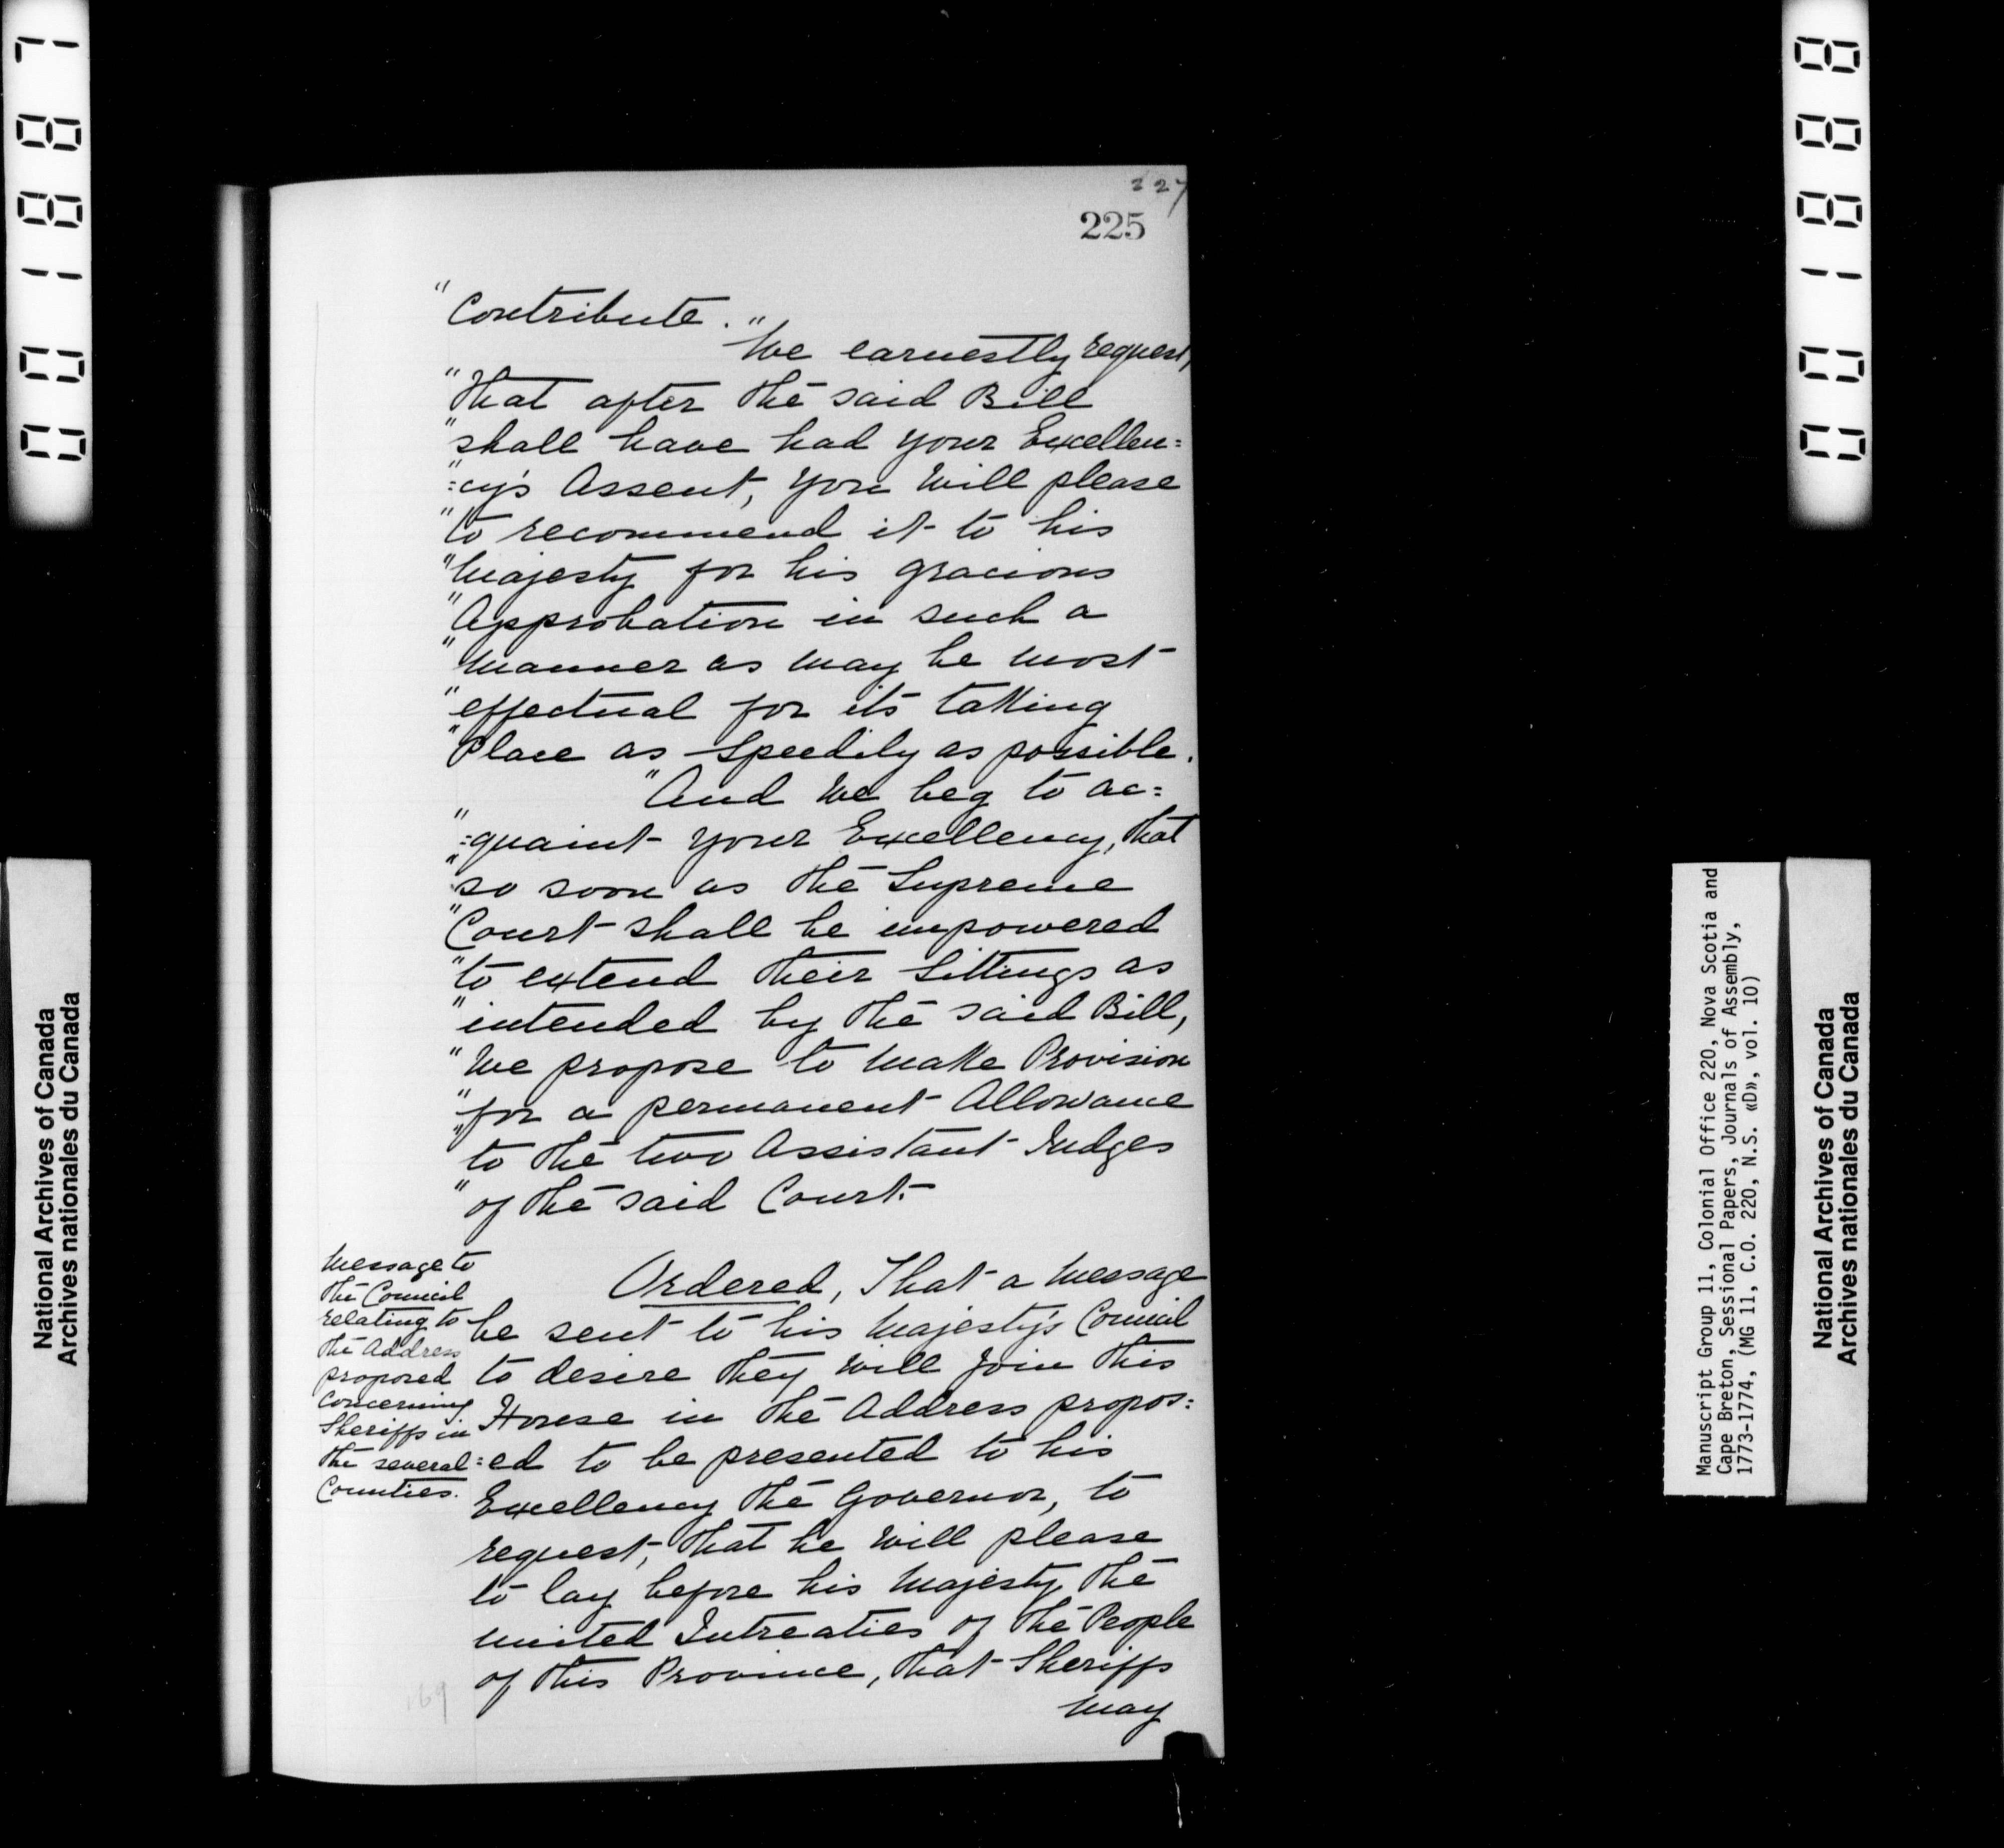 001887
001888
National Archives of Canada
Archives nationales du Canada
227
225
"Contribute."
"We earnestly request,
"that after the said Bill
"shall have had your Excellen=
"=cy's Assent, you will please
"to recommend it to his
"Majesty for his gracious
"Approbation in such a
"Manner as may be most
"effectual for its taking
"Place as Speedily as possible.
"And we beg to ac=
"=quaint your Excellency, that
"so soon as the Supreme
"Court shall be impowered
"to extend their Sittings as
"intended by the said Bill,
"We propose to make Provision
"for a permanent Allowance
"to the two Assistant Judges
"of the said Court.
Message to
the Council
relating to
the Address
proposed
concerning
Sheriffs in
the several
Counties.
Ordered, That a Message
be sent to his Majesty's Council
to desire they will join this
House in the Address propos=
=ed to be presented to his
Excellency the Governor, to
request, that he will please
to lay before his Majesty the
united Intreaties of the People
of this Province, that Sheriffs
may
169
Manuscript Group 11, Colonial Office 220, Nova Scotia and
Cape Breton, Sessional Papers, Journals of Assembly,
1773-1774, (MG 11, C.O. 220, N.S. «D», vol. 10)
National Archives of Canada
Archives nationales du Canada